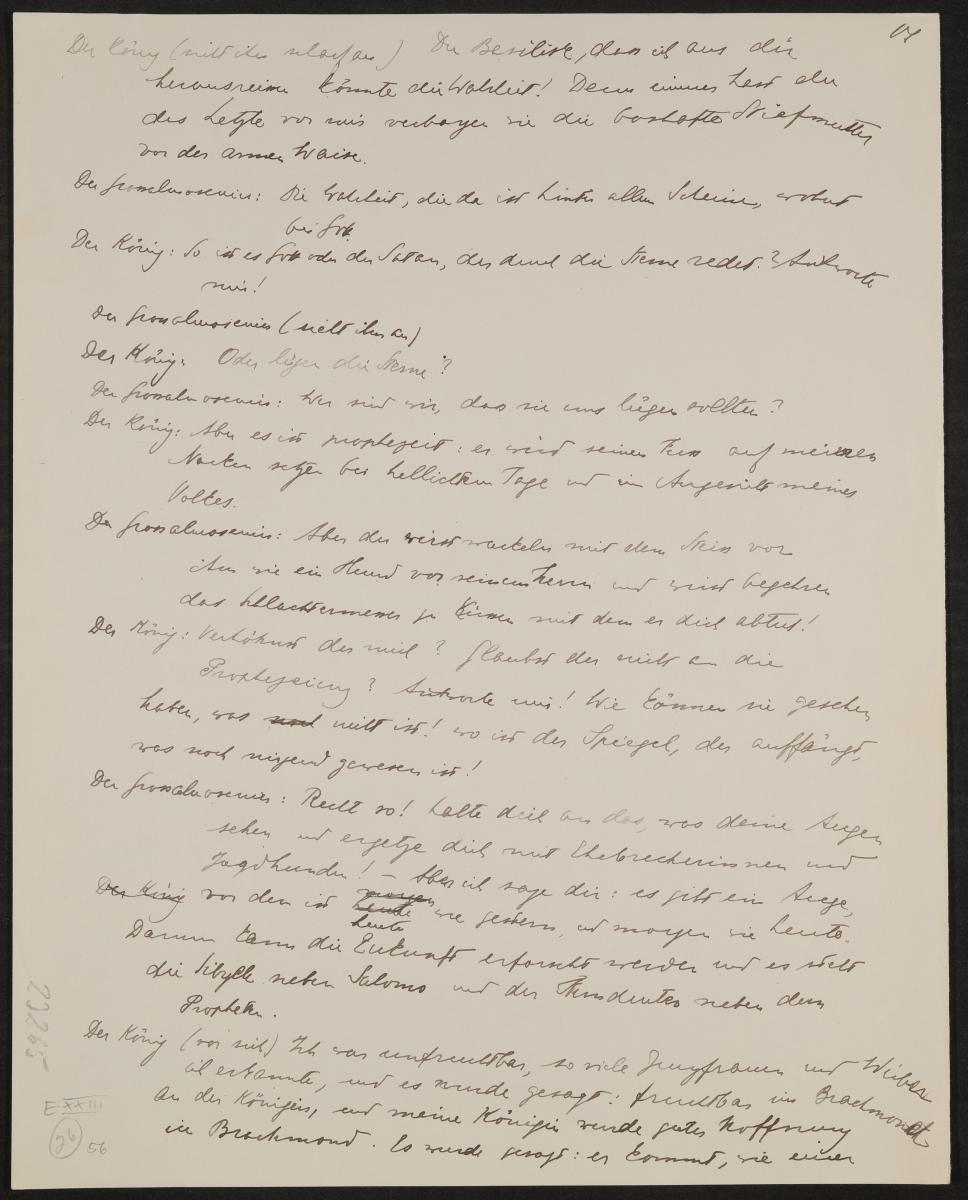 Der König (sieht ihn scharf an) Du Basilisk, dass ich aus dir
herausreissen könnte die Wahrheit! Denn immer hast du
das Letzte vor mir verborgen wie die boshafte Stiefmutter
vor der armen Waise.
Der Grossalmosenier: Die Wahrheit, die da ist hinter allem Scheine, wohnt
bei Gott.
Der König: So ist es Gott oder der Satan, der durch die Sterne redet? Antworte
mir!
Der Grossalmosenier (sieht ihn an)
Der König: Oder lügen die Sterne?
Der Grossalmosenier: Wer sind wir, dass sie uns lügen sollten?
Der König: Aber es ist prophezeit: er wird seinen Fuss auf meinen
Nacken setzen bei hellichtem Tage und im Angesicht meines
Volkes.
Der Grossalmosenier: Aber du wirst wackeln mit dem Steiss vor
ihm wie ein Hund vor seinem Herrn und wirst begehren
das Schlachtermesser zu küssen mit dem er dich abtut!
Der König: Verhöhnst du mich? Glaubst du nicht an die
Prophezeiung? Antworte mir! Wie können sie gesehen
haben, was noch nicht ist! wo ist der Spiegel, der auffängt,
was noch nirgend gewesen ist!
Der Grossalmosenier: Recht so! halte dich an das, was deine Augen
sehen und ergetze dich mit Ehebrecherinnen und
Jagdhunden! – Aber ich sage dir: es gibt ein Auge,
Der König vor dem ist heute morgen wie gestern, und morgen wie heute.
heute
Darum kann die Zukunft erforscht werden und es steht
die Sibylle neben Salomo und der Sterndeuter neben dem
Propheten.
Der König (vor sich) Ich war unfruchtbar, so viele Jungfrauen und Weiber
ich erkannte, und es wurde gesagt: fruchtbar im Brachmond
an der Königin, und meine Königin wurde guter Hoffnung
im Brachmond. Es wurde gesagt: er kommt, wie einer
23265
E XXIII
26
56